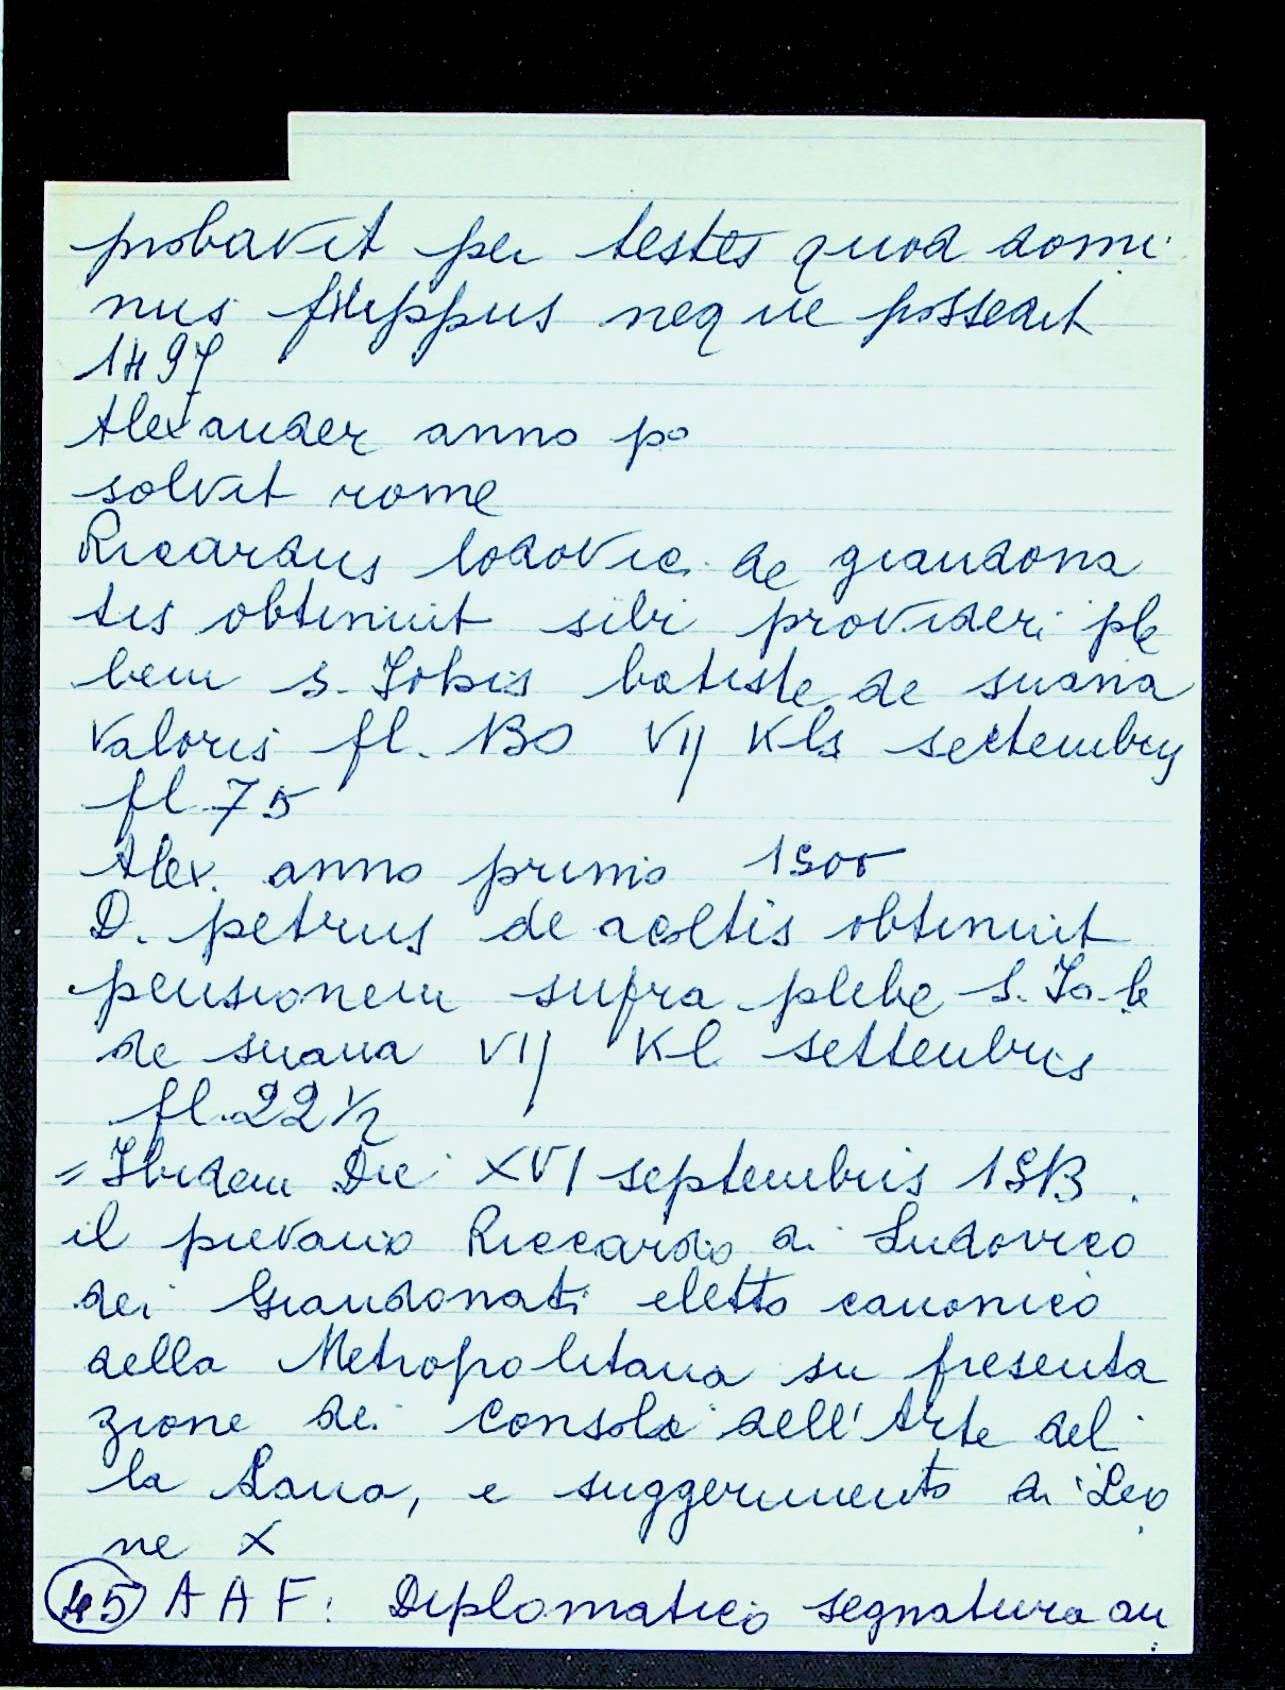 probavit per testes quod domi
nus filippus neque possedit
1497
Alexander anno po
solvit rome
Ricardus lodovici de giandona
tis obtinuit sibi provideri ple
bem s. Johis batiste de suana
valoris fl. 130 VIJ Kls settembris
fl. 75
Alex. anno primo 1500
D. petrus de acoltis obtinuit
pensionem supra plebe S. Jo. b
de suana VIJ Kl settembris
fl. 22 1/2
= Ibidem Die XVI septembris 1513.
il pievano Riccardo di Ludovico
dei Giandonati eletto canonico
della Metropolitana su presenta
zione dei Consoli dell'Arte del
la Lana, e suggerimento di Leo
ne X
45 A A F: Diplomatico segnatura an